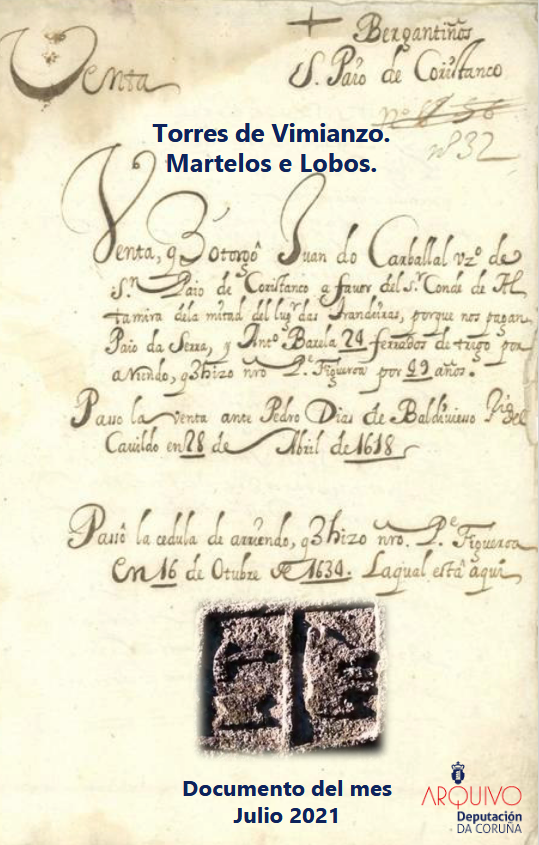 Venta
Bergantiños
S. Paio de Coristanco
nº 32
Torres de Vimianzo.
Martelos e Lobos.
Venta, q̃ otorgó Juan do Carballal vzº de
Sn. Paio de Coristanco a favor del sr. Conde de Al
tamira dela mitad del lugr. das Brandeiras, porque nos pagan
Paio da Serra, y Antº Barela 24 ferrados de trigo por
arriendo, q̃ hizo nro Pe. Figueroa por 19 años.
Passo la venta ante Pedro Dias de Baldivieso
Cavildo en 28 de Abril de 1618
Passó la cedula de arriendo, q̃ hizo nro. Pe. Figueroa
en 16 de Otubre de 1634. Laqual está aqui
Documento del mes
Julio 2021
ARQUIVO
Deputación
DA CORUÑA